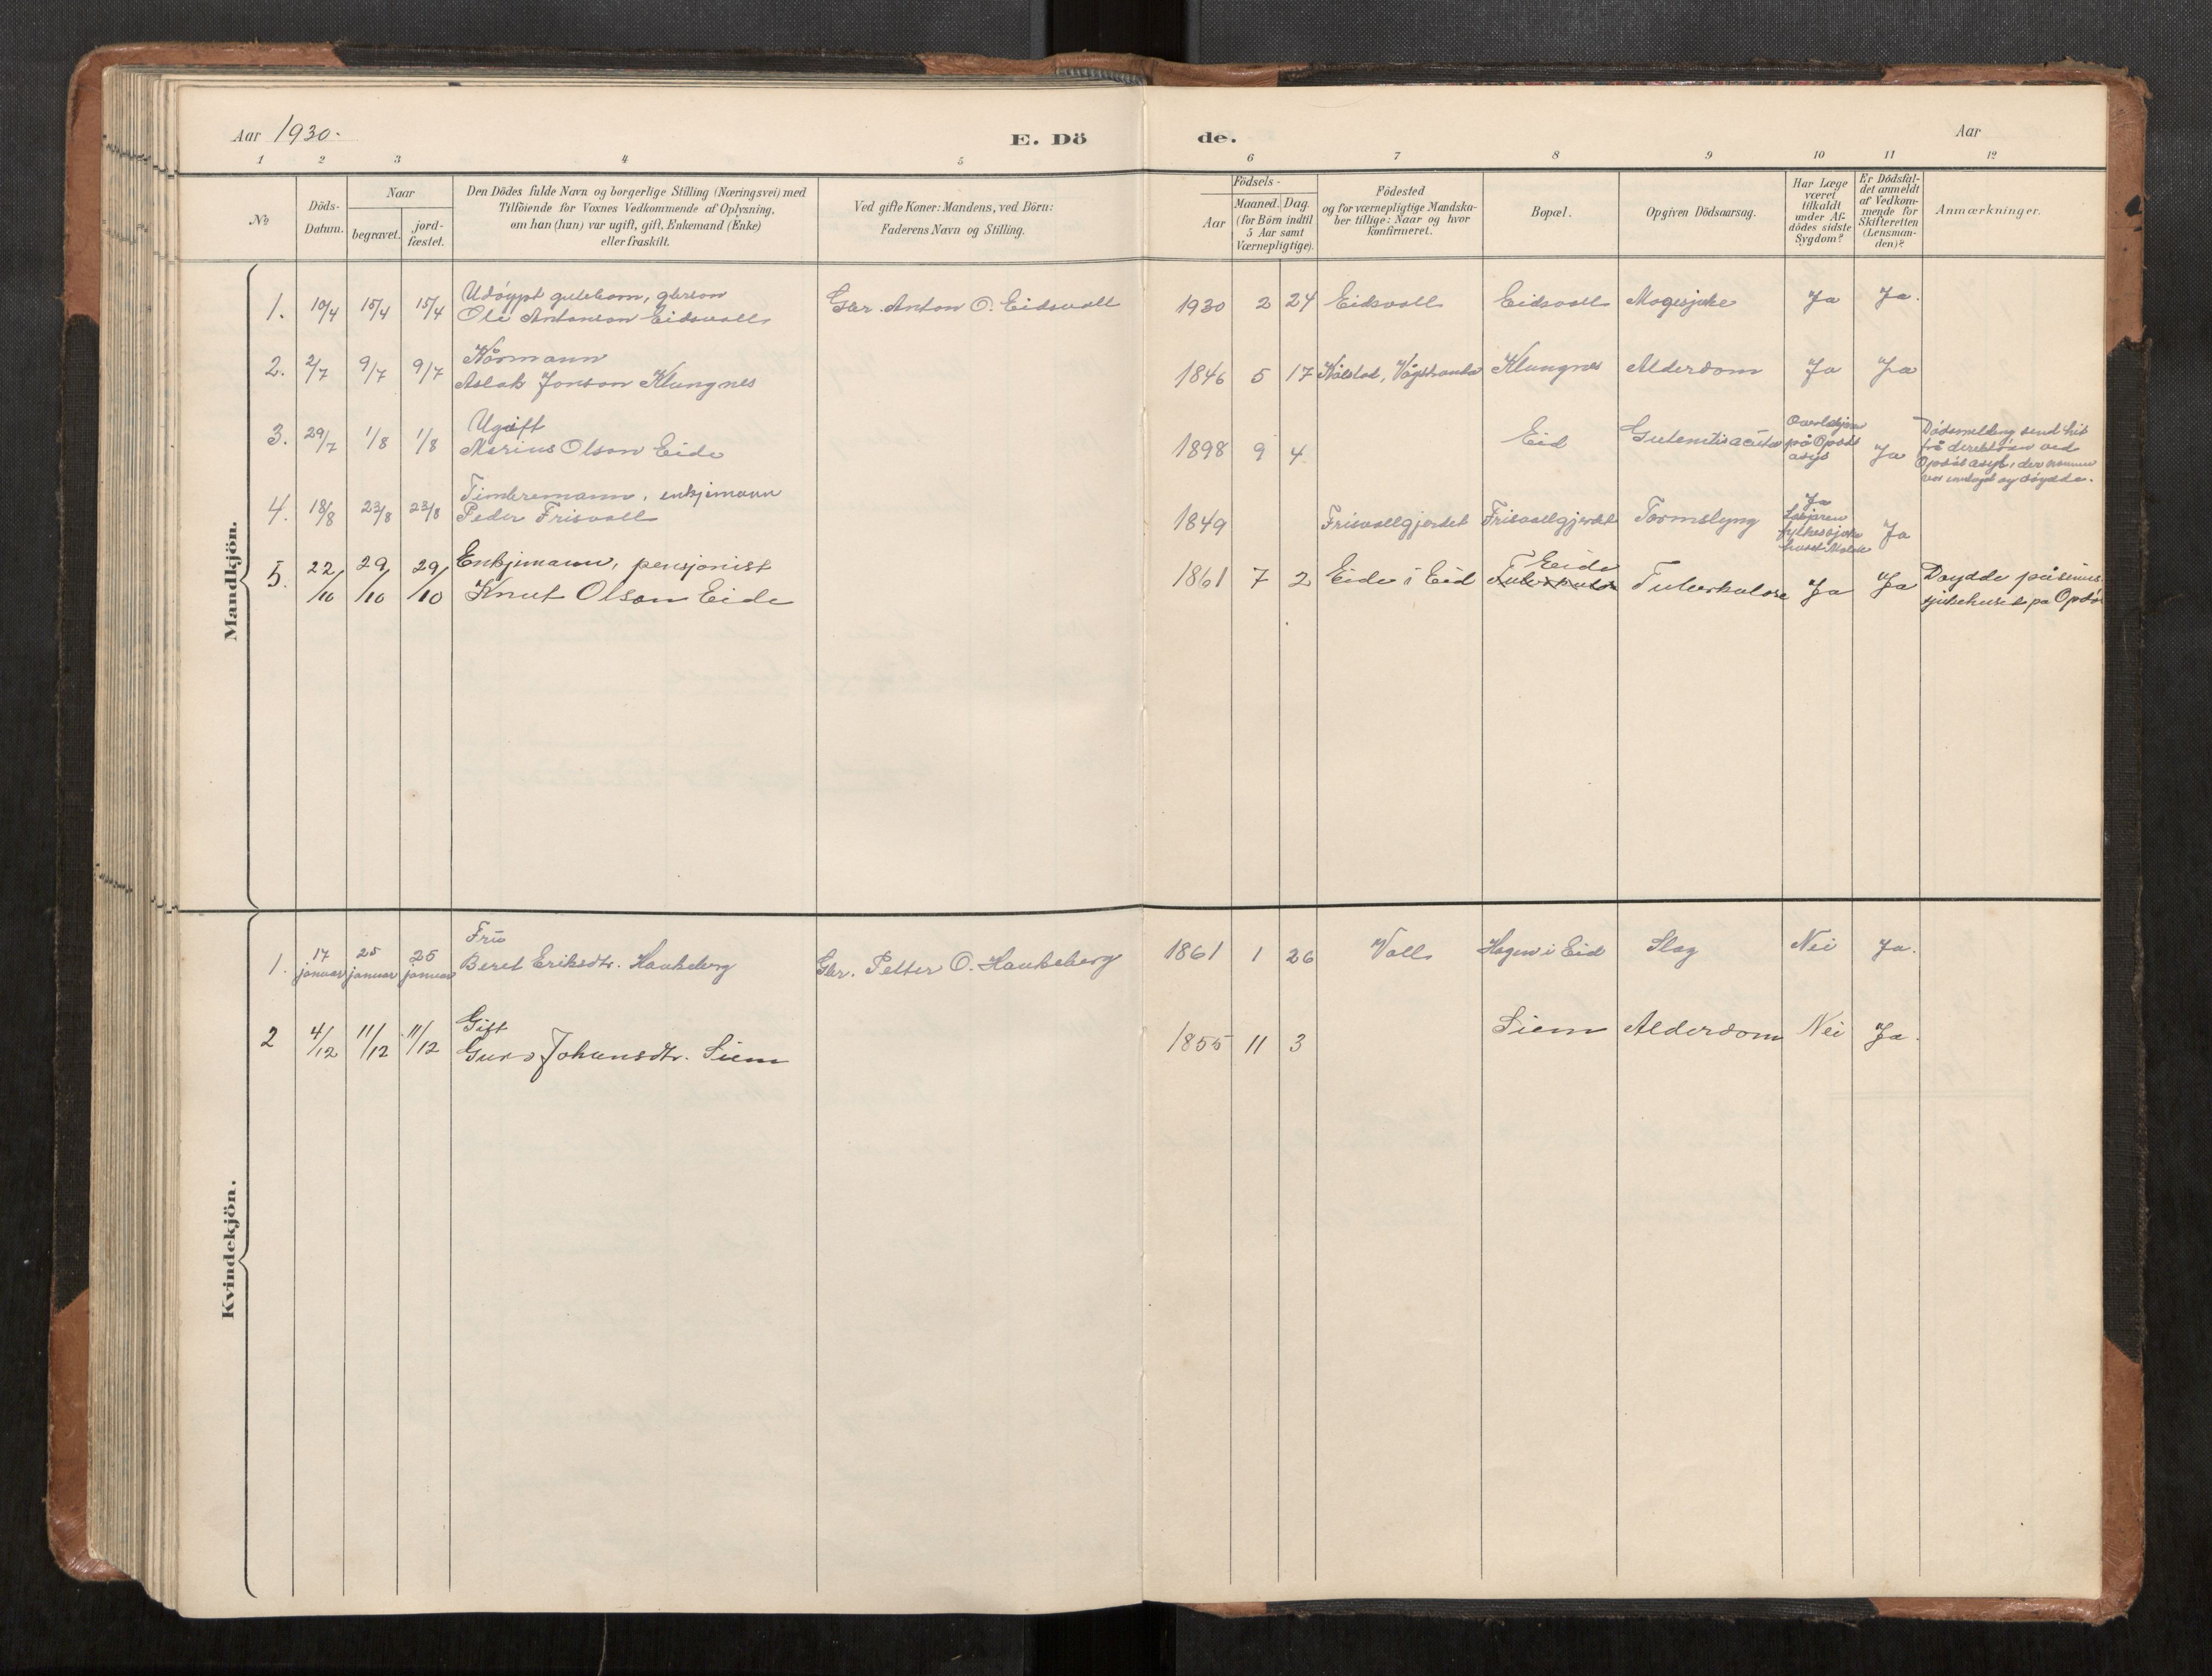 Aar 1930.
E. Dö
de.
Aar
1 2 3 4 5 6 7 8 9 10 11 12
No
Döds-
Datum.
Naar
begravet.
jord-
fæstet.
Den Dödes fulde Navn og borgerlige Stilling (Næringsvei) med
Tilföiende for Voxnes Vedkommende af Oplysning,
om han (hun) var ugift, gift, Enkemand (Enke)
eller fraskilt.
Ved gifte Koner: Mandens, ved Börn:
Faderens Navn og Stilling.
Födsels-
Aar
Maaned. Dag
(for Börn indtil
5 Aar samt
Værnepligtige).
Födested
og for værnepligtige Mandska-
ber tillige: Naar og hvor
Konfirmeret.
Bopæl.
Opgiven Dödsaarsag.
Har Læge
været
tilkaldt
under Af-
dödes sidste
Sygdom?
Er Dödsfal-
det anmeldt
af Vedkom-
mende for
Skifteretten
(Lensman-
den)?
Anmærkninger.
Mandkjön.
1. 10/4 15/4 15/4
Udöypt gutebarn,
Ole Antonson Eidsvoll
Gbr. Anton O. Eidsvoll
1930 2 24 Eidsvoll Eidsvoll Magesjuke Ja Ja.
2. 2/7 9/7 9/7
Kårmann
Aslak Jonson Klungnes
1846 5 17 Kålstad, Vågstranda Klungnes Alderdom Ja Ja
3. 29/7 1/8 1/8
Ugift
Marius Olson Eide
1898 9 4 Eid acuta
på Opdöl
asyl
Ja
Dödsmelding send hit
frå direktören ved
Opdöl asyl, der mannen
var innlagd og döydde.
4. 18/8 23/8 23/8
Timbremann, enkjemann
Peder Frisvoll
1849 Frisvollgjerdet Frisvollgjerdet Tarmslyng
Ja
fylkessjuke
huset Molde
Ja
5. 22/10 29/10 29/10
Enkjemann, pensjonist
Knut Olson Eide
1861 7 2 Eide i Eid
Eide
Tuberkulose Ja Ja
Döydde på sinns-
sjukehuset på Opdöl
Kvindekjön.
1. 17 januar 25 januar 25 januar
Fru
Beret Eriksdtr. Haukeberg
Gbr. Petter O. Haukeberg
1861 1 26 Voll Hagen i Eid Slag Nei Ja.
2 4/12 11/12 11/12
Gift
Guro Johansdtr. Siem
1855 11 3 Siem Alderdom Nei Ja.